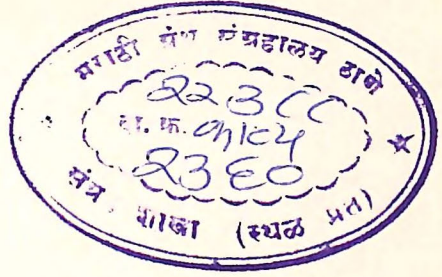 मराठी ग्रंथ संग्रहालय ठाणे
२२३८८
दा. क्र. काव्य
२३६०
शाखा (स्थळ प्रत)